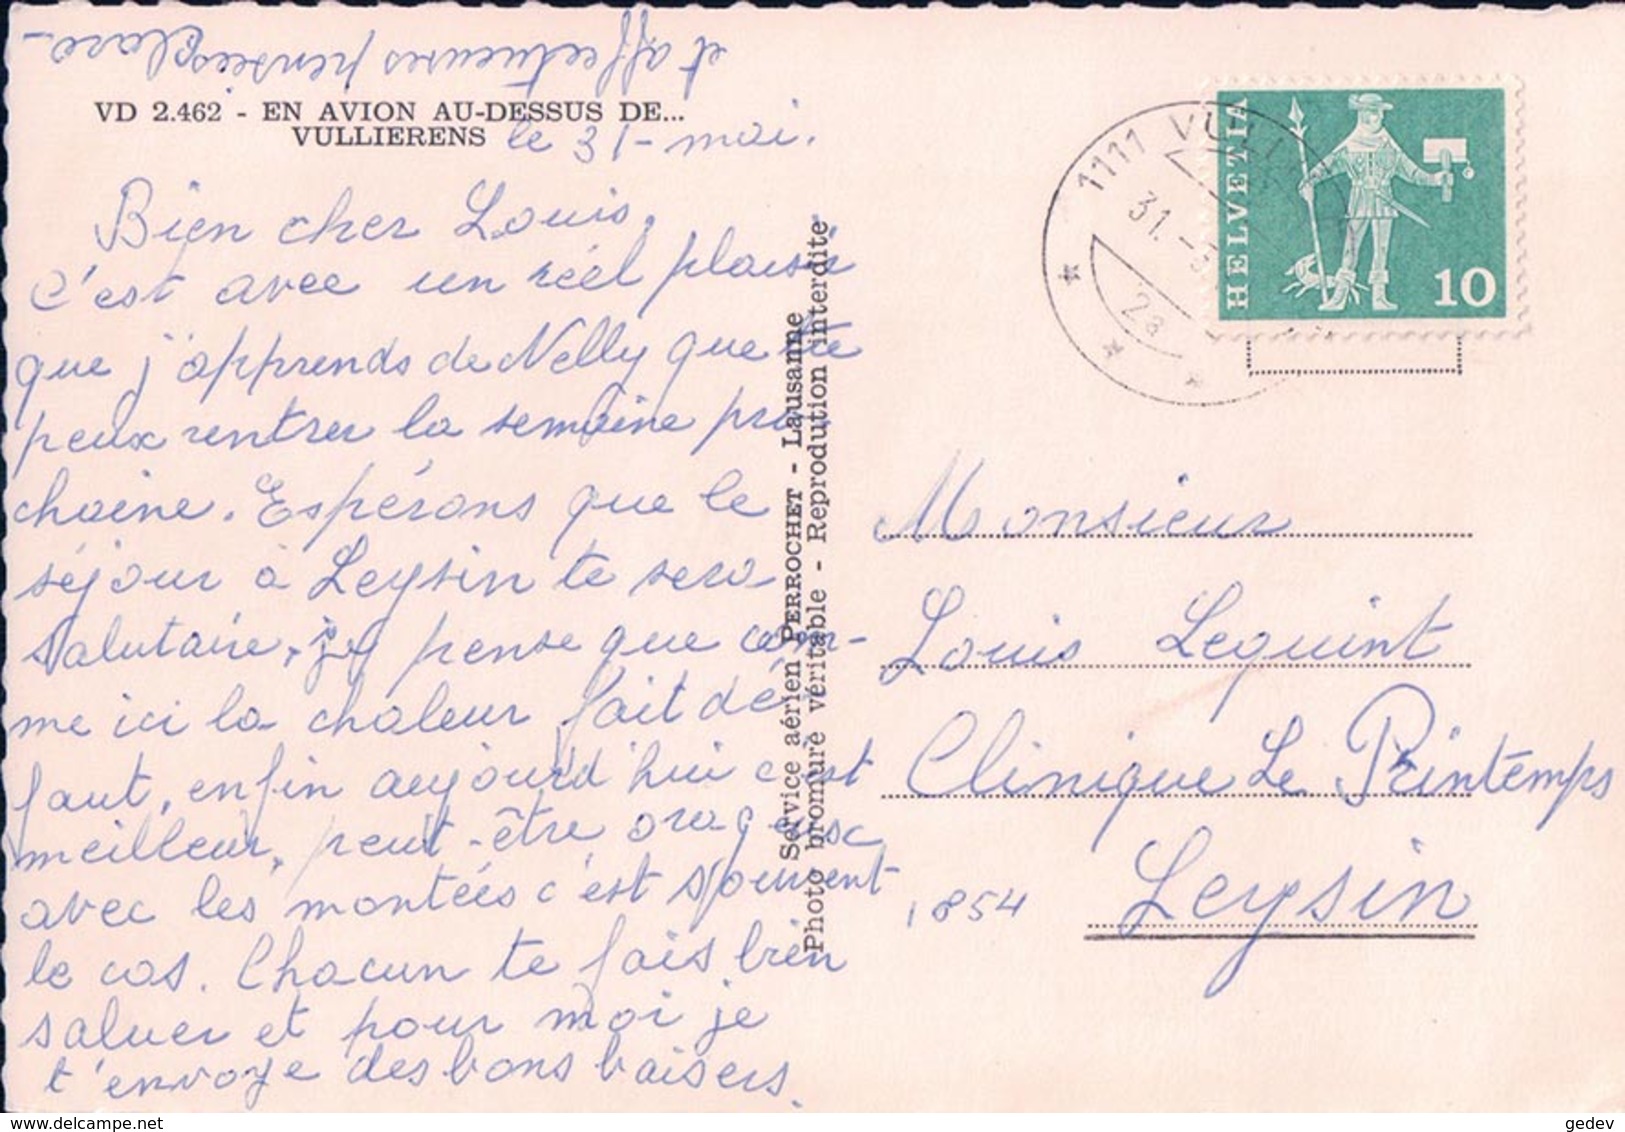 VD 2.462 - EN AVION AU-DESSUS DE...
VULLIERENS
le 31 - mai.
Bien cher Louis,
C'est avec un réel plaisir
que j'apprends de Nelly que tu
peux rentrer la semaine pro
chaine. Espérons que le
séjour à Leysin te sera
salutaire, je pense que com-
me ici la chaleur fait dé-
faut, enfin aujourd'hui c'est
meilleur, peut-être orageuse
avec les montées c'est souvent
le cas. Chacun te fais bien
saluer et pour moi je
t'envoye des bons baisers.
et affectueuses pensées
Clara -
Service aérien PERROCHET - Lausanne
Photo bromure véritable - Reprodution interdite
1111 VULLI
31. -5
HELVETIA
10
Monsieur
Louis Lequint
Clinique Le Printemps
1854 Leysin
www.delcampe.net
gedev